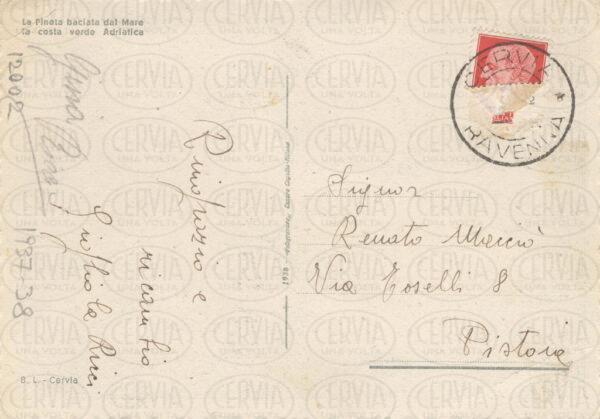 La Pineta baciata dal Mare
la costa verde Adriatica
12002
1937-38
Ringrazio e
ricambio
Giuglio la Ricci
1938
B. L. - Cervia
CERVIA *
RAVENNA
Signor
Renato Macciò
Via Toselli 8
Pistoia
CERVIA
UNA VOLTA